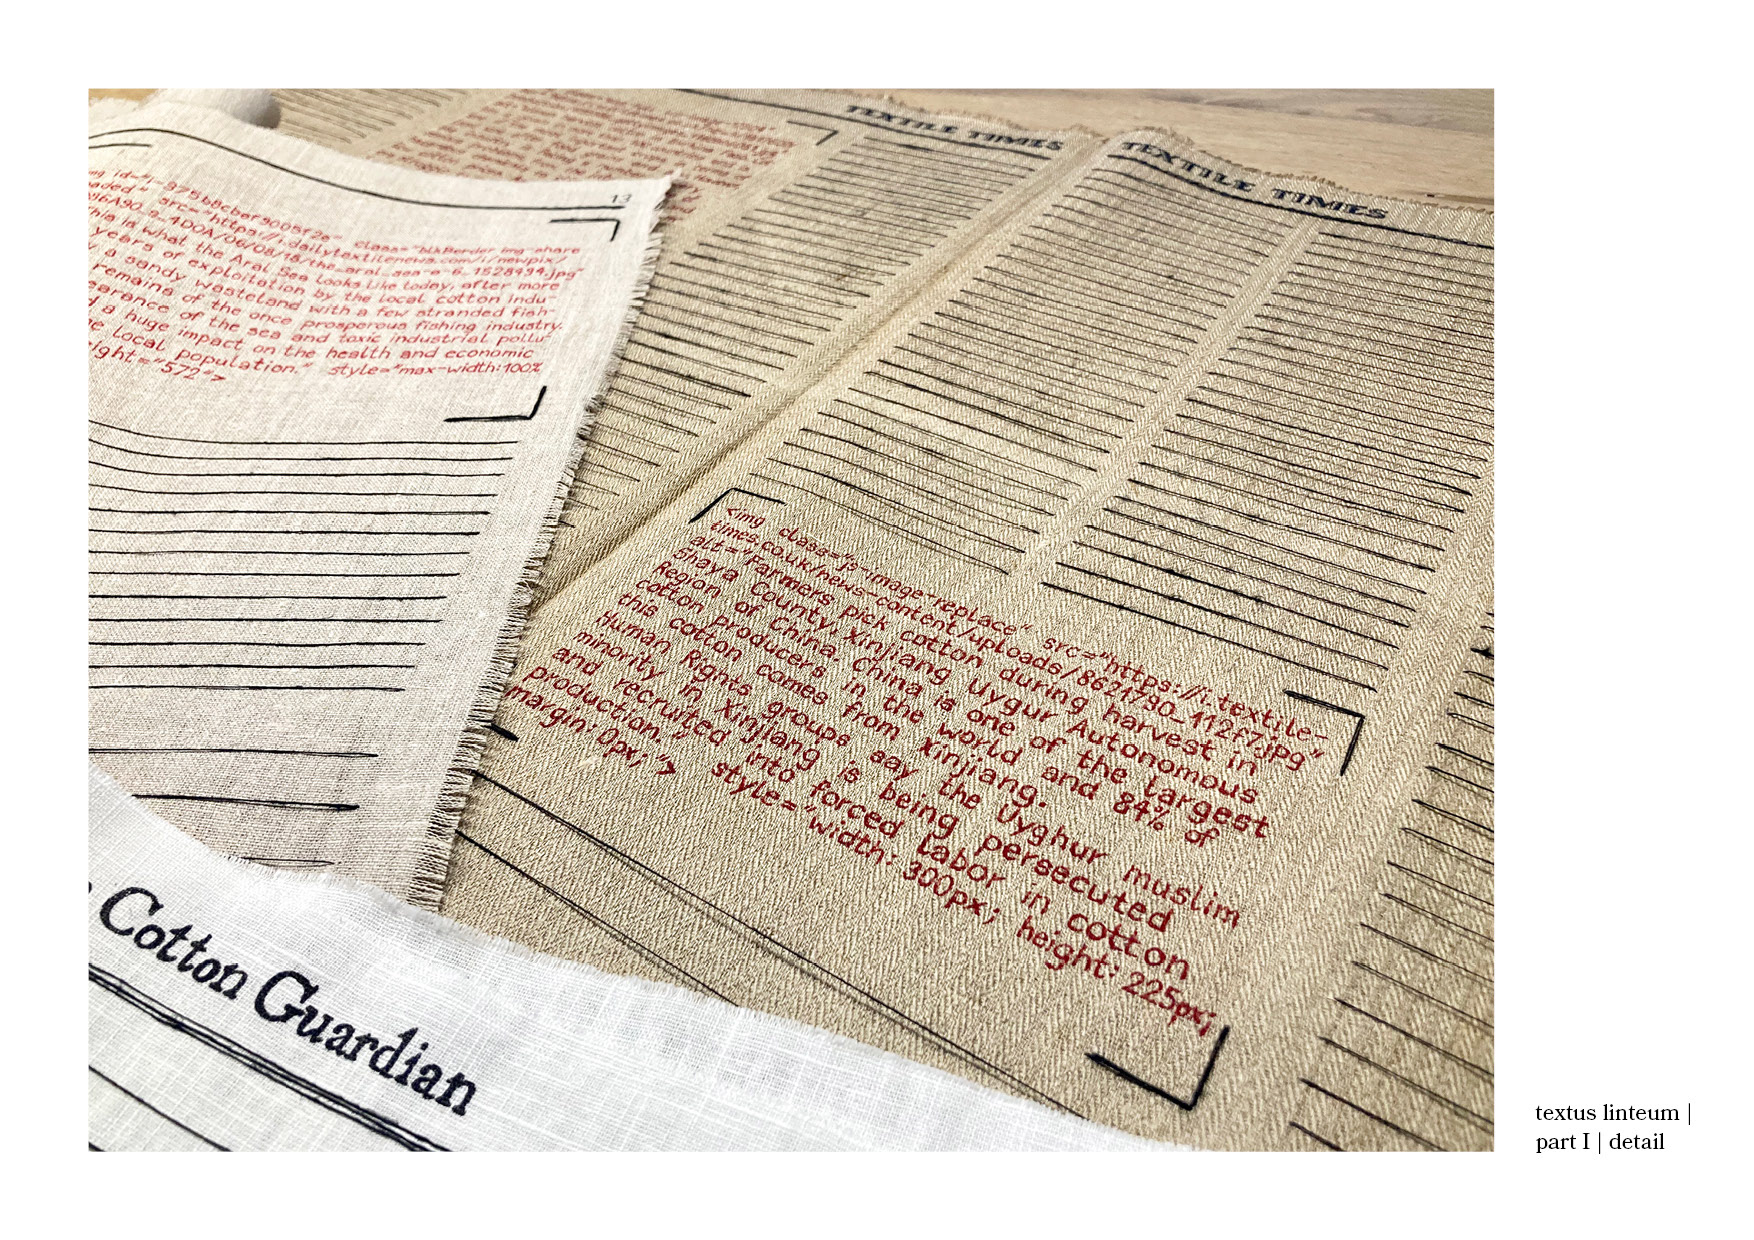 TEXTILE TIMES
TEXTILE TIMES
13
class="blkBorder img-share
src="https://i.dailytextilenews.com/i/newpix/
4D0A/06/08/18/the_aral_sea-a-6_1528494.jpg"
This is what the Aral Sea looks like today, after more
years of exploitation by the local cotton indu-
a sandy wasteland with a few stranded fish-
remains of the once prosperous fishing industry.
earance of the sea and toxic industrial pollu-
a huge impact on the health and economic
local population." style="max-width:100%
ight="572">
<img class="js-image-replace" src="https://i.textile-
times.co.uk/news-content/uploads/8621790_112f7.jpg"
alt="Farmers pick cotton during harvest in
Shaya County, Xinjiang Uygur Autonomous
Region of China. China is one of the largest
cotton producers in the world and 84% of
this cotton comes from Xinjiang.
Human Rights groups say the Uyghur muslim
minority in Xinjiang is being persecuted
and recruited into forced labor in cotton
production." style="width: 300px; height: 225px;
margin: 0px;">
Cotton Guardian
textus linteum |
part I | detail